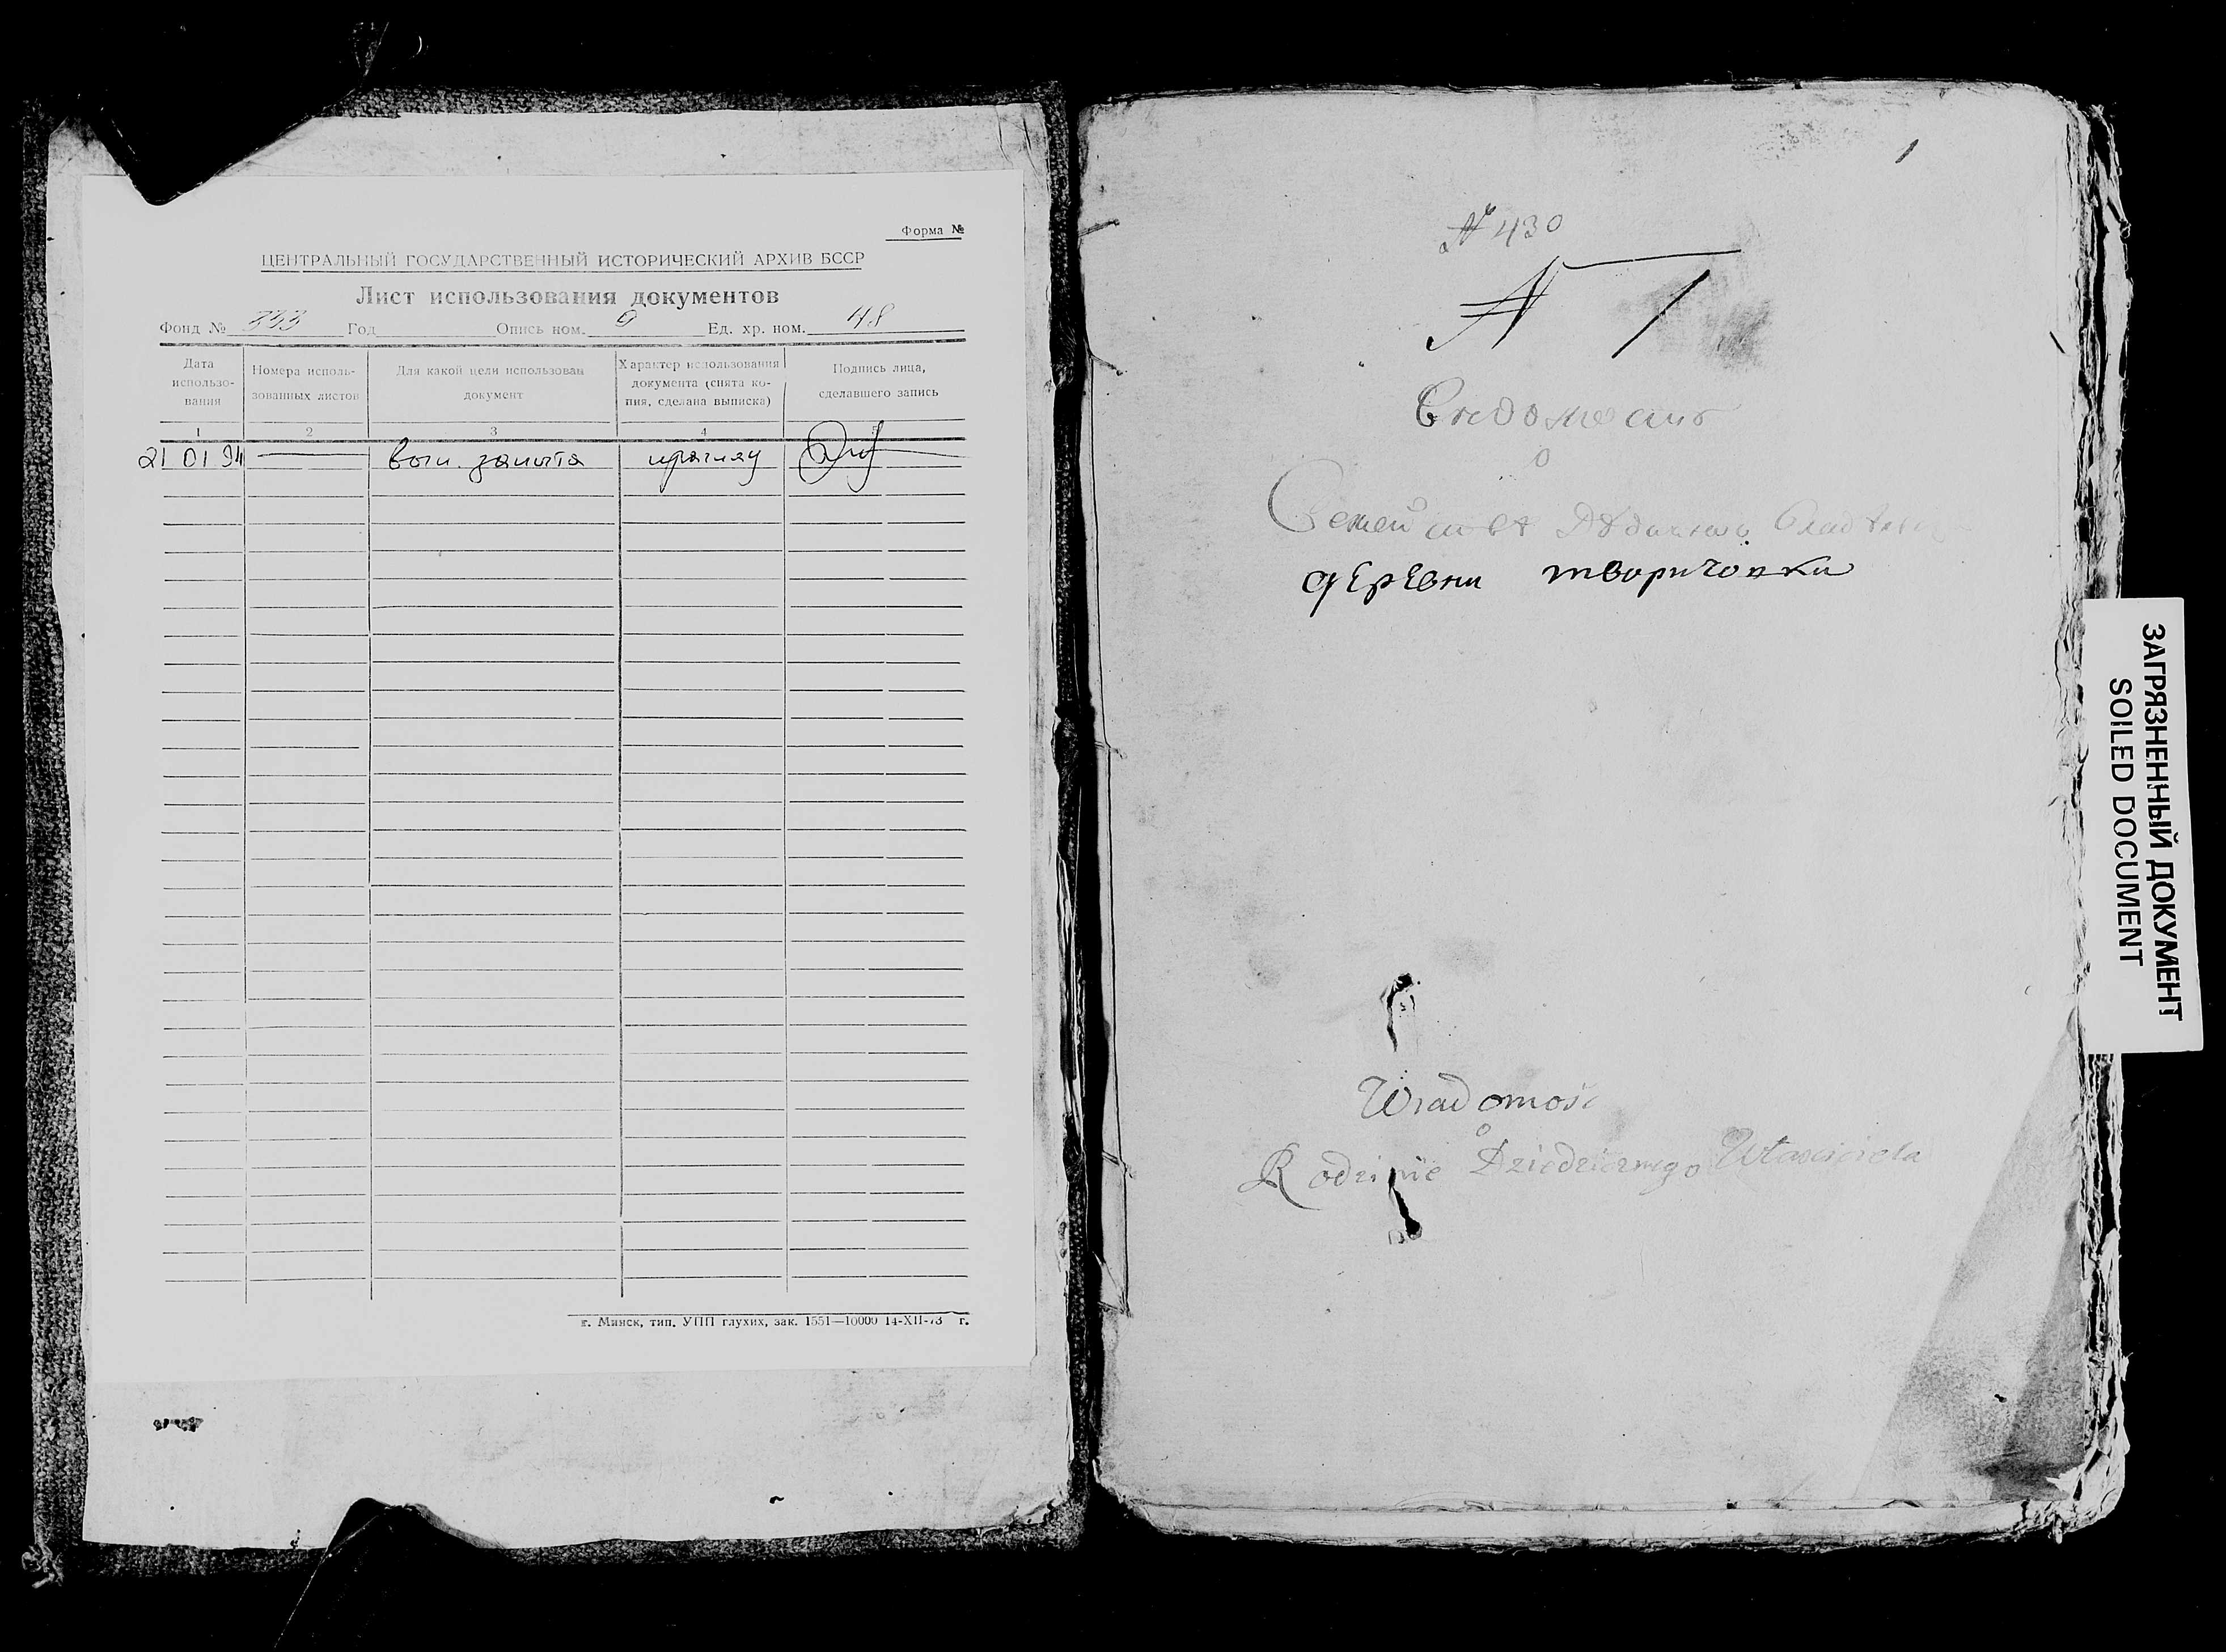 Форма №
ЦЕНТРАЛЬНЫЙ ГОСУДАРСТВЕННЫЙ ИСТОРИЧЕСКИЙ АРХИВ БССР
Лист использования документов
Фонд № 333 Год Опись ном. 9 Ед. хр. ном. 48
Дата использо-вания
Номера исполь-зованных листов
Для какой цели использован документ
Характер использования документа (снята ко-пия, сделана выписка)
Подпись лица, сделавшего запись
1 2 3 4 5
21 01 94
г. Минск, тип. УПП глухих, зак. 1551—10000 14-XII-73 г.
1
№ 430
№ 1
Ведомость
о
Семействѣ
деревни
Wiadomość
o
Rodzinie Dziedzicznego Własciciela
ЗАГРЯЗНЕННЫЙ ДОКУМЕНТ
SOILED DOCUMENT